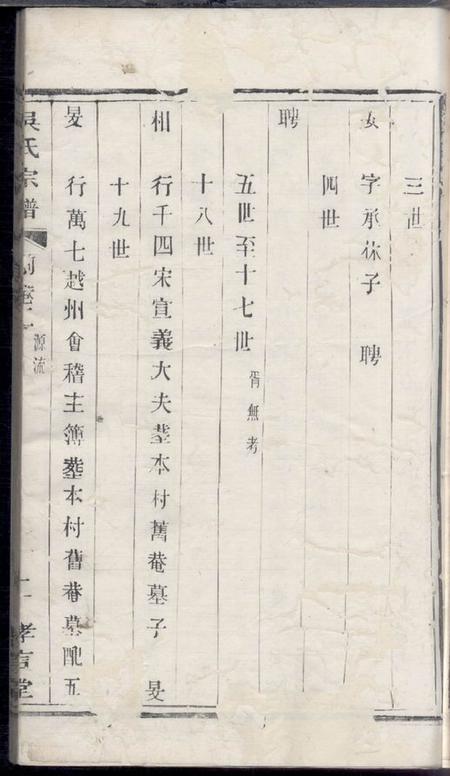 三世
友 字承休子 聘
四世
聘
五世至十七世 胥無考
十八世
相 行千四宋宣義大夫塟本村舊菴墓子 旻
十九世
旻 行萬七越州會稽主簿塟本村舊菴墓配五
吳氏宗譜
源流
孝友堂